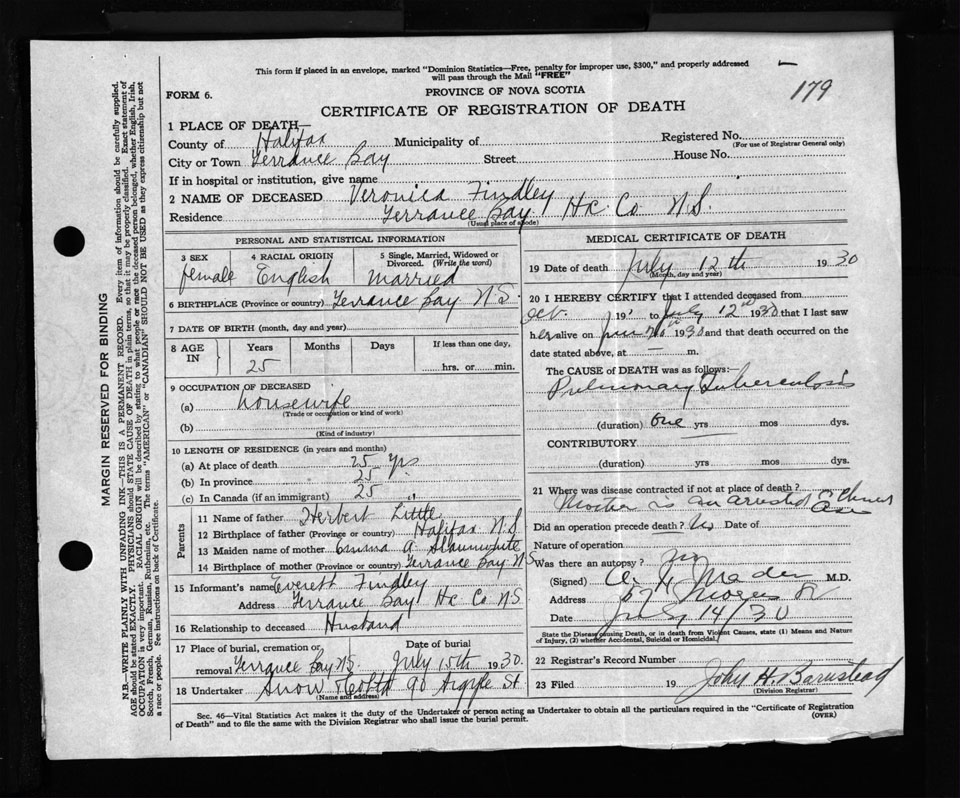 This form if placed in an envelope, marked "Dominion Statistics—Free, penalty for improper use, $300," and properly addressed
will pass through the Mail "FREE"
179
PROVINCE OF NOVA SCOTIA
FORM 6.
CERTIFICATE OF REGISTRATION OF DEATH
1 PLACE OF DEATH—
County of Halifax Municipality of Registered No.
(For use of Registrar General only)
City or Town Terrance Bay Street House No.
If in hospital or institution, give name
2 NAME OF DECEASED Veronica Findley
Residence Terrance Bay Hx Co N.S.
(Usual place of abode)
PERSONAL AND STATISTICAL INFORMATION
3 SEX 4 RACIAL ORIGIN 5 Single, Married, Widowed or
Divorced. (Write the word)
female English Married
6 BIRTHPLACE (Province or country) Terrance Bay N.S.
7 DATE OF BIRTH (month, day and year)
8 AGE IN Years Months Days If less than one day,
25 hrs. or min.
9 OCCUPATION OF DECEASED
(a) housewife
(Trade or occupation or kind of work)
(b)
(Kind of industry)
10 LENGTH OF RESIDENCE (in years and months)
(a) At place of death 25 Yrs
(b) In province 25
(c) In Canada (if an immigrant) 25 "
Parents
11 Name of father Herbert Little
12 Birthplace of father (Province or country) Halifax N.S
13 Maiden name of mother Emma A Slaunwhite
14 Birthplace of mother (Province or country) Terrance Bay N.S
15 Informant's name Everett Findley
Address Terrance Bay Hx Co N.S.
16 Relationship to deceased Husband
17 Place of burial, cremation or Date of burial
removal Terrance Bay N.S. July 15th 1930.
18 Undertaker Snow & Co Ltd 90 Argyle St
(Name and address)
MEDICAL CERTIFICATE OF DEATH
19 Date of death July 12th 1930
(Month, day and year)
20 I HEREBY CERTIFY that I attended deceased from
Oct. 19 to July 12th 1930 that I last saw
her alive on 1930 and that death occurred on
date stated above, at — m.
The CAUSE of DEATH was as follows:—
Pulmonary Tuberculosis
(duration) one yrs mos dys.
CONTRIBUTORY
(duration) yrs mos dys.
21 Where was disease contracted if not at place of death?
Mother is an arrested
Did an operation precede death? No Date of
Nature of operation
Was there an autopsy?
(Signed) M.D.
Address
Date July 14/30
State the Disease causing Death, or in death from Violent Causes, state (1) Means and Nature
of Injury, (2) whether Accidental, Suicidal or Homicidal.
22 Registrar's Record Number
23 Filed 19 John H. Barnstead
(Division Registrar)
Sec. 46—Vital Statistics Act makes it the duty of the Undertaker or person acting as Undertaker to obtain all the particulars required in the "Certificate of Registration
of Death" and to file the same with the Division Registrar who shall issue the burial permit.
(OVER)
MARGIN RESERVED FOR BINDING
N.B.—WRITE PLAINLY WITH UNFADING INK—THIS IS A PERMANENT RECORD. Every item of information should be carefully supplied.
AGE should be stated EXACTLY. PHYSICIANS should STATE CAUSE OF DEATH in plain terms, so that it may be properly classified. Exact statement of
OCCUPATION is very important. RACIAL ORIGIN will be described by stating to what people or race the deceased person belonged, whether English, Irish,
Scotch, French, German, Russian, Ruthenian, etc. The terms "AMERICAN" or "CANADIAN" SHOULD NOT BE USED as they express citizenship but not
a race or people. See instructions on back of Certificate.